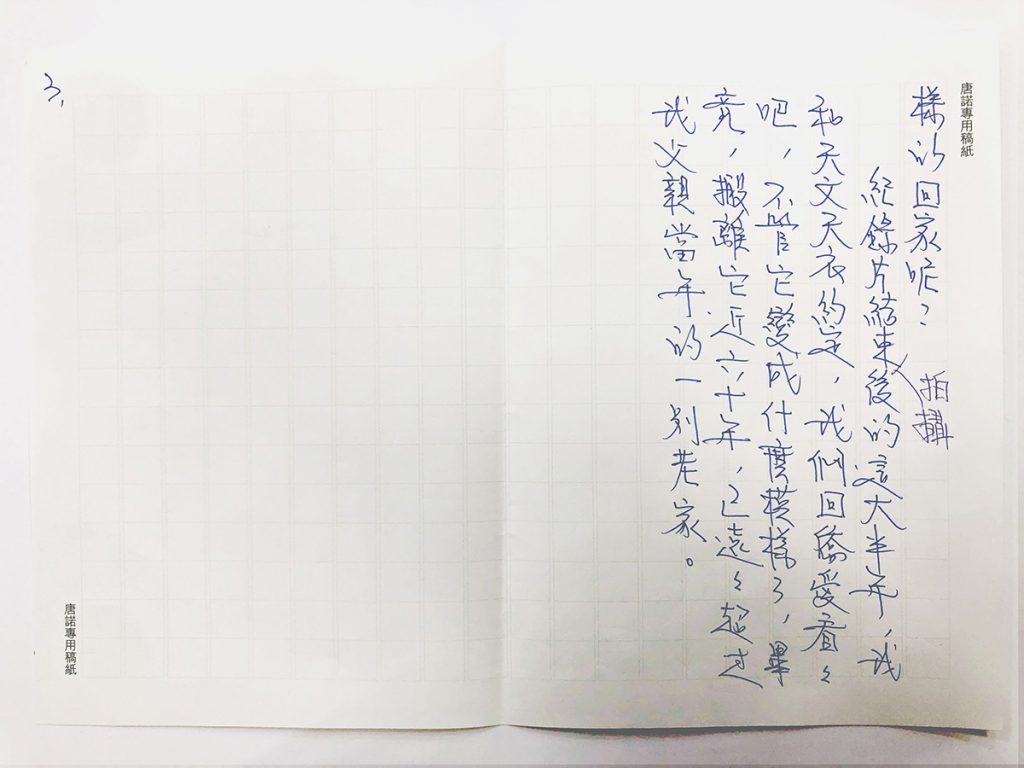 唐諾專用稿紙
樣的回家呢？
拍攝
紀錄片結束後的這大半年，我
和天文天衣約定，我們回僑愛看々
吧，不管它變成什麼模樣了，畢
竟，搬離它近六十年，已遠々超過
我父親當年的一別老家。
3，
唐諾專用稿紙